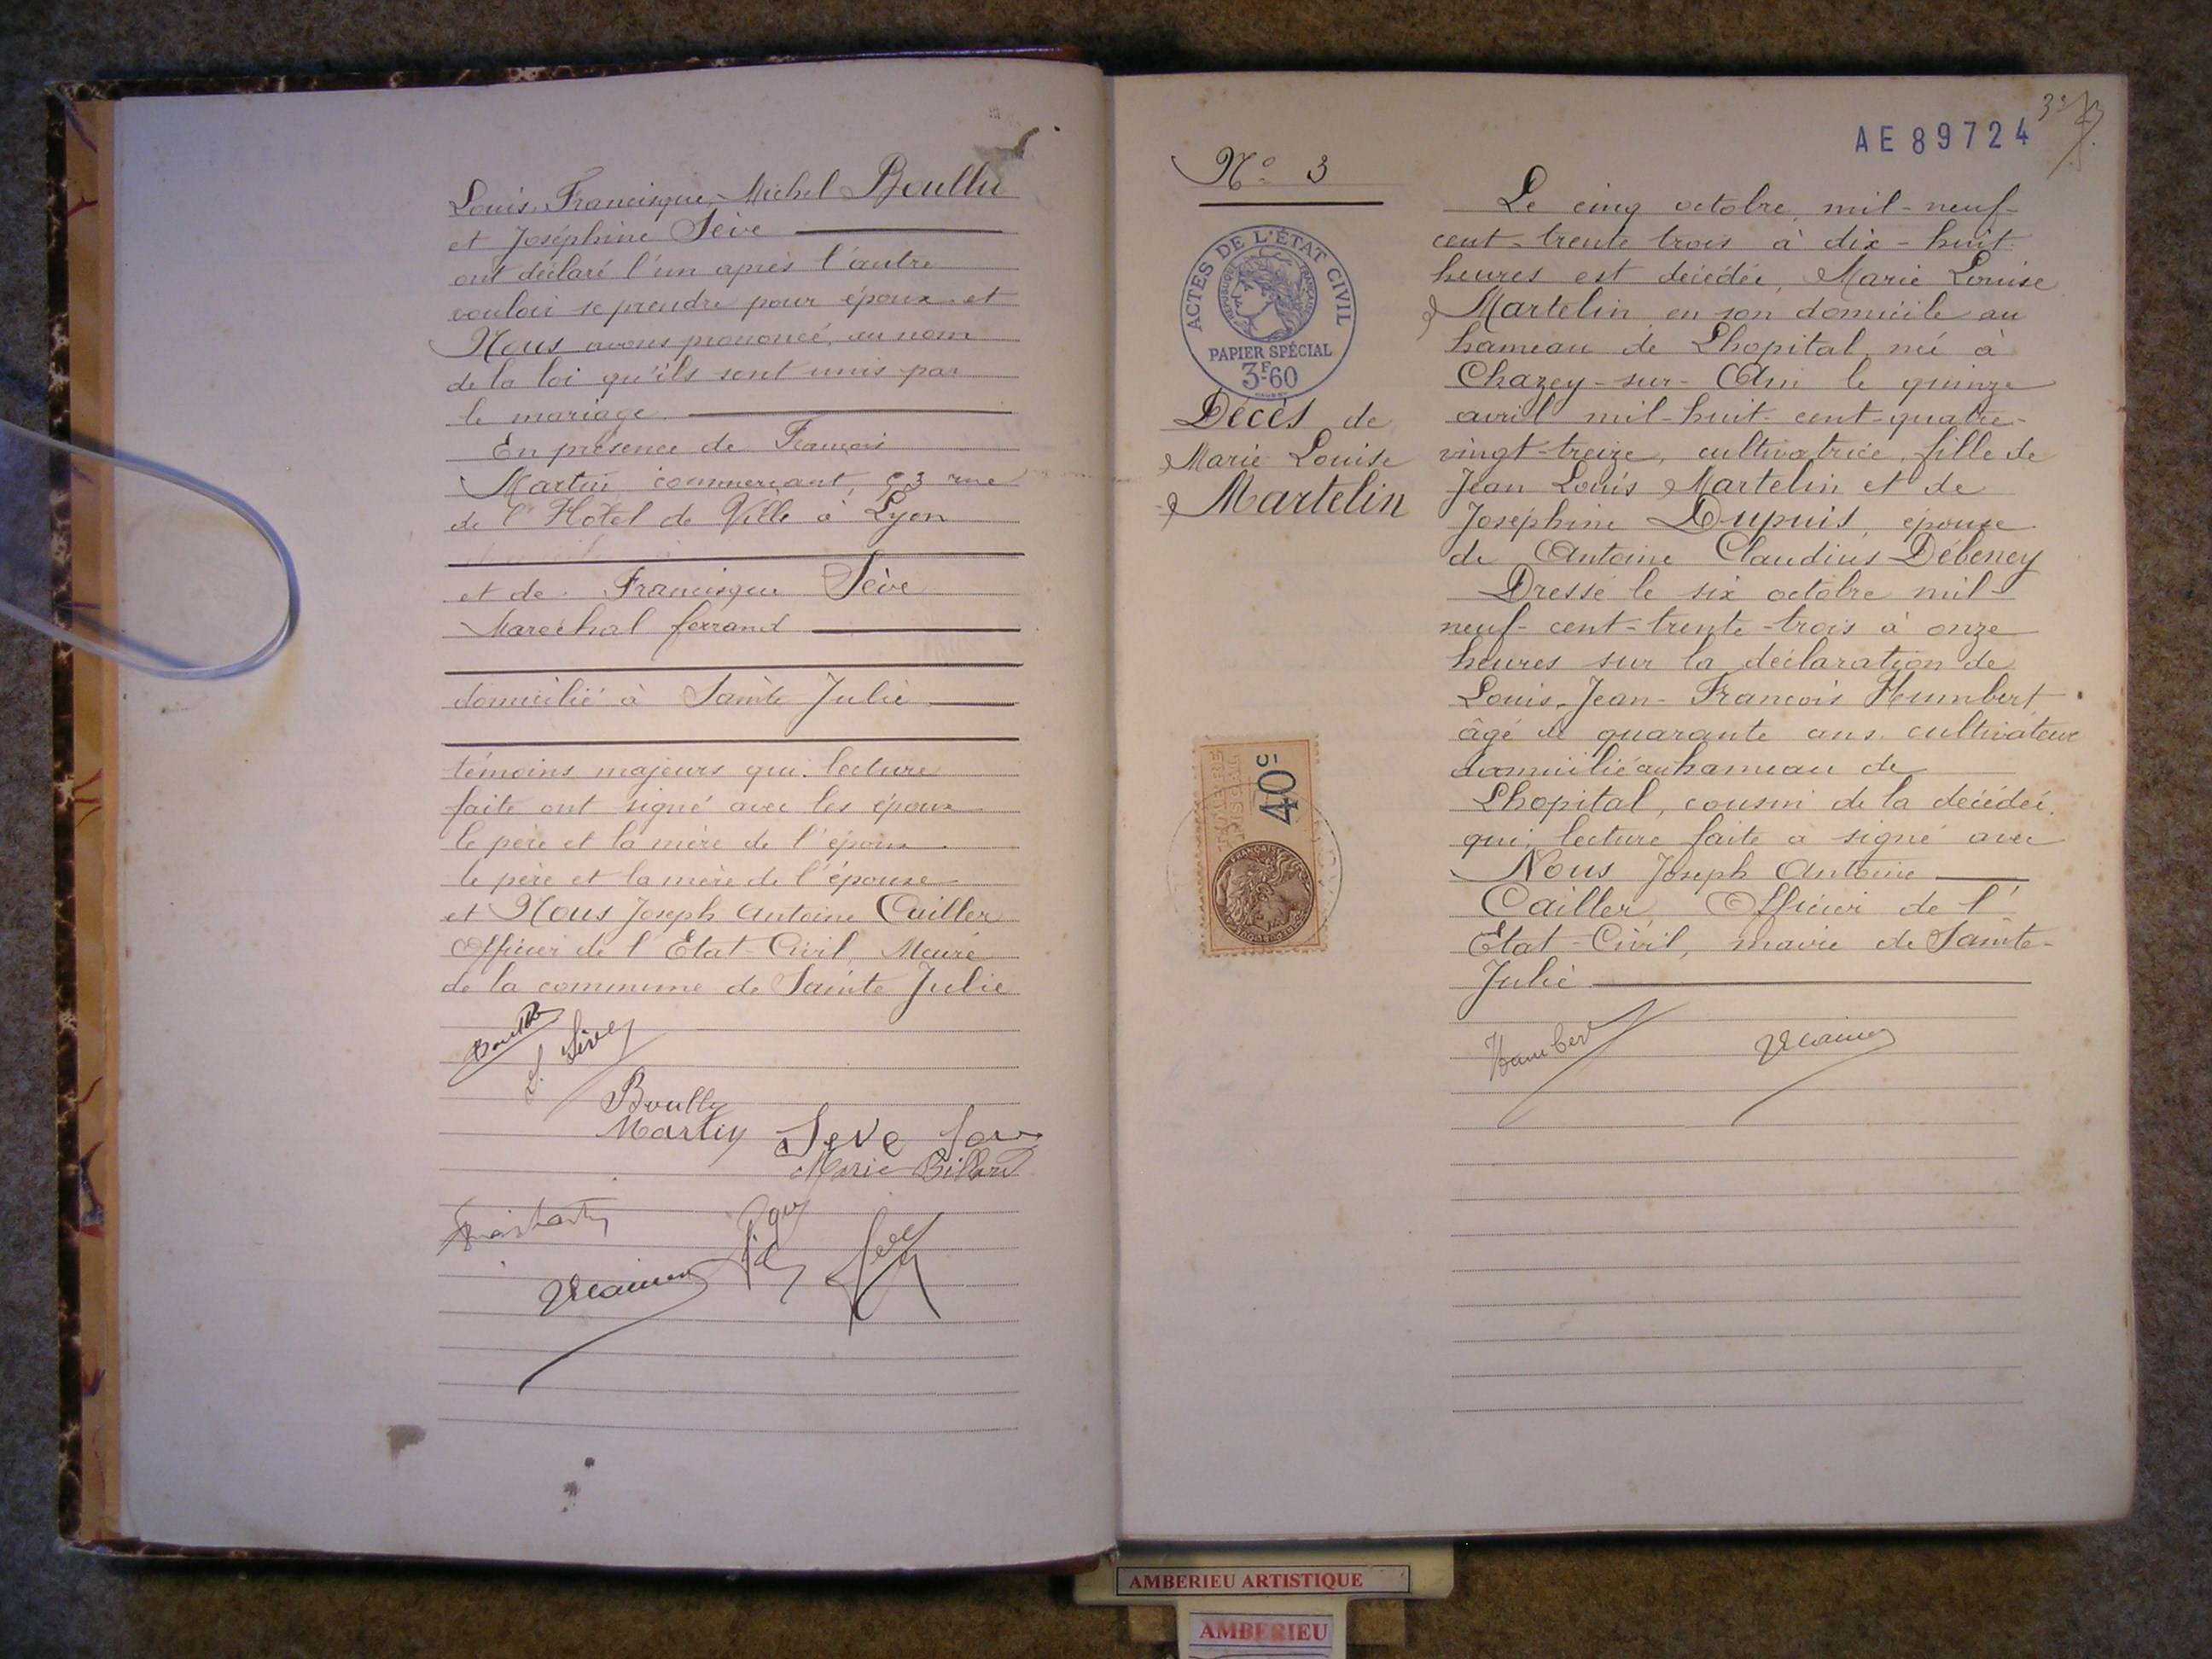 Louis Francisque Michel Boullu
et Joséphine Sève
ont déclaré l'un après l'autre
vouloir se prendre pour époux et
Nous avons prononcé, au nom
de la loi qu'ils sont unis par
le mariage.
En présence de François
Martin commerçant 93 rue
de l'Hôtel de Ville à Lyon
et de Francisque Sève
Maréchal ferrand
domicilié à Sainte Julie
témoins majeurs qui lecture
faite ont signé avec les époux
le père et la mère de l'époux
le père et la mère de l'épouse
et Nous Joseph Antoine Cailler
Officier de l'Etat-Civil, Maire
de la commune de Sainte Julie
Boullu
Martin
Seve
Marie Billard
AE89724
N° 3
ACTES DE L'ÉTAT CIVIL
RÉPUBLIQUE FRANÇAISE
PAPIER SPÉCIAL
3F.60
Décès de
Marie Louise
Martelin
40c
Le cinq octobre, mil-neuf-
cent-trente trois à dix-huit
heures est décédée, Marie Louise
Martelin en son domicile au
hameau de Lhopital, née à
Chazey-sur-Ain le quinze
avril mil-huit-cent-quatre-
vingt-treize, cultivatrice, fille de
Jean Louis Martelin et de
Joséphine Dupuis, épouse
de Antoine Claudius Débeney
Dressé le six octobre mil-
neuf-cent-trente-trois à onze
heures sur la déclaration de
Louis-Jean-François Humbert
âgé de quarante ans. cultivateur
domicilié au hameau de
Lhopital, cousin de la décédée.
qui, lecture faite a signé avec
Nous Joseph Antoine
Cailler, Officier de l'
Etat-Civil, maire de Sainte-
Julie
Humbert
AMBERIEU ARTISTIQUE
AMBERIEU